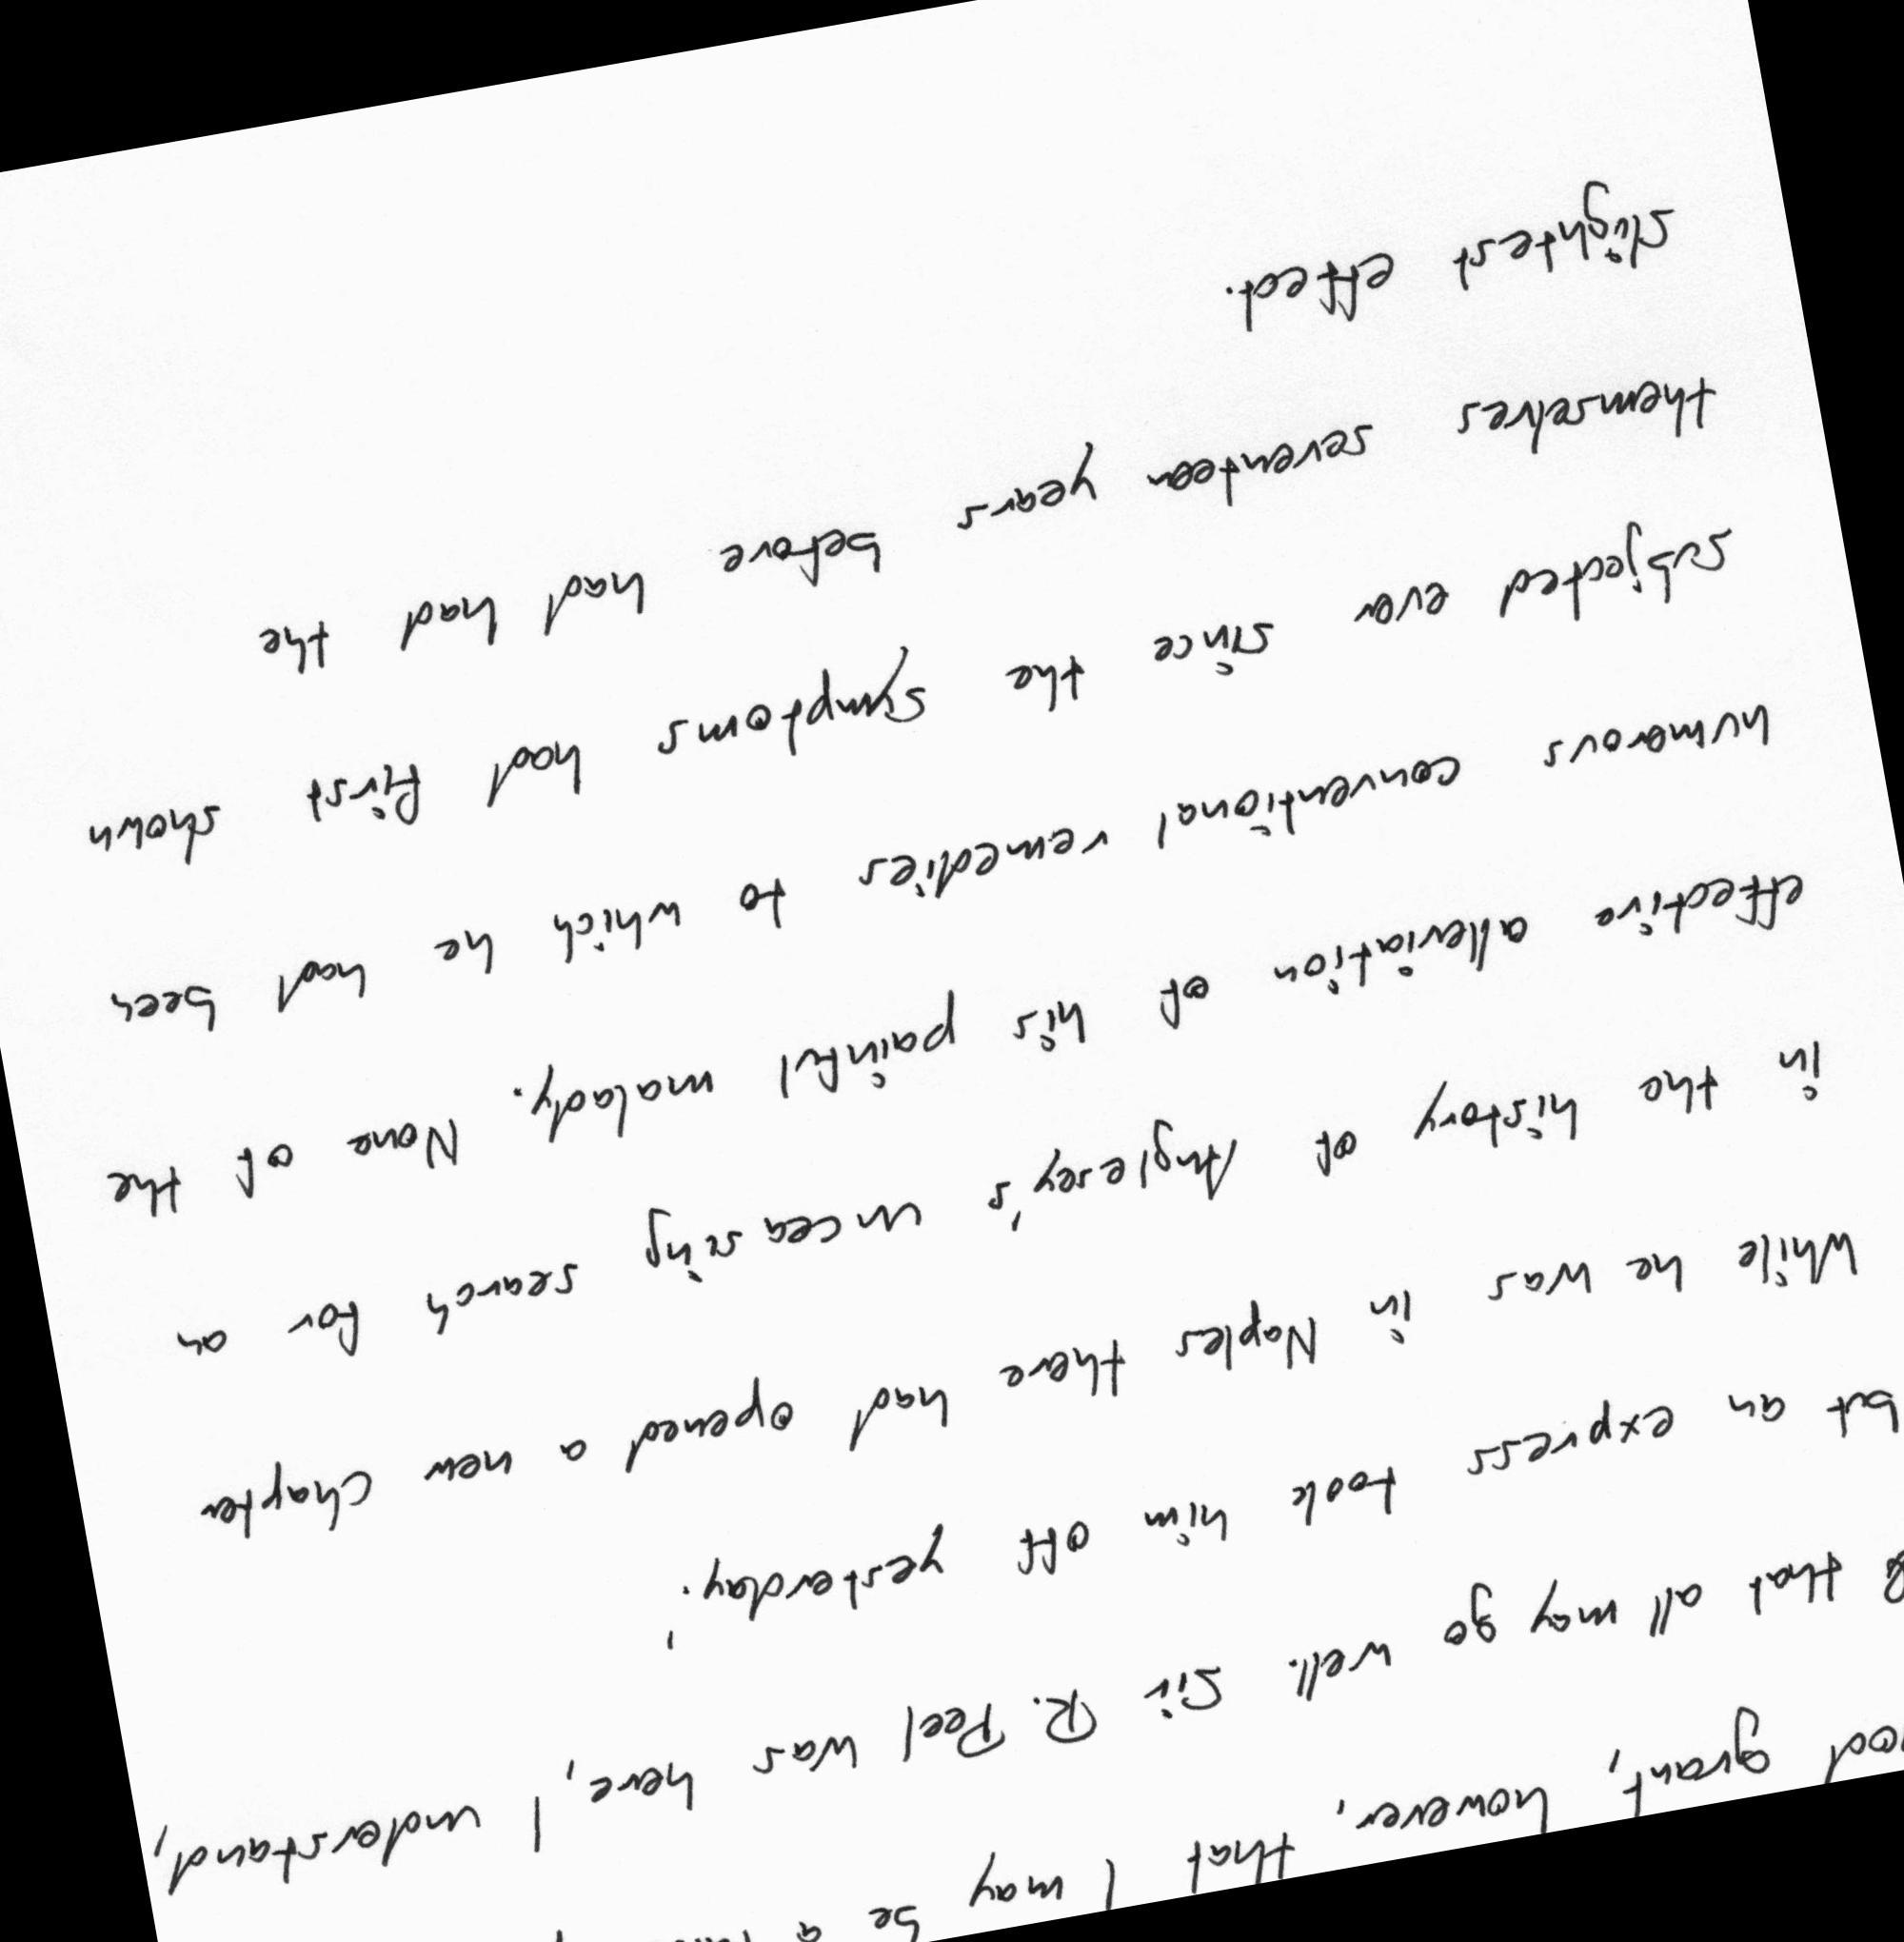 God grant, however, that I may be a
that all may go well. Sir R. Peel was here, I understand,
but an express took him off yesterday.'
While he was in Naples there had opened a new chapter
in the history of Anglesey's unceasing search for an
effective alleviation of his painful malady. None of the
humorous conventional remedies to which he had been
subjected ever since the symptoms had first shown
themselves seventeen years before had had the
slightest effect.